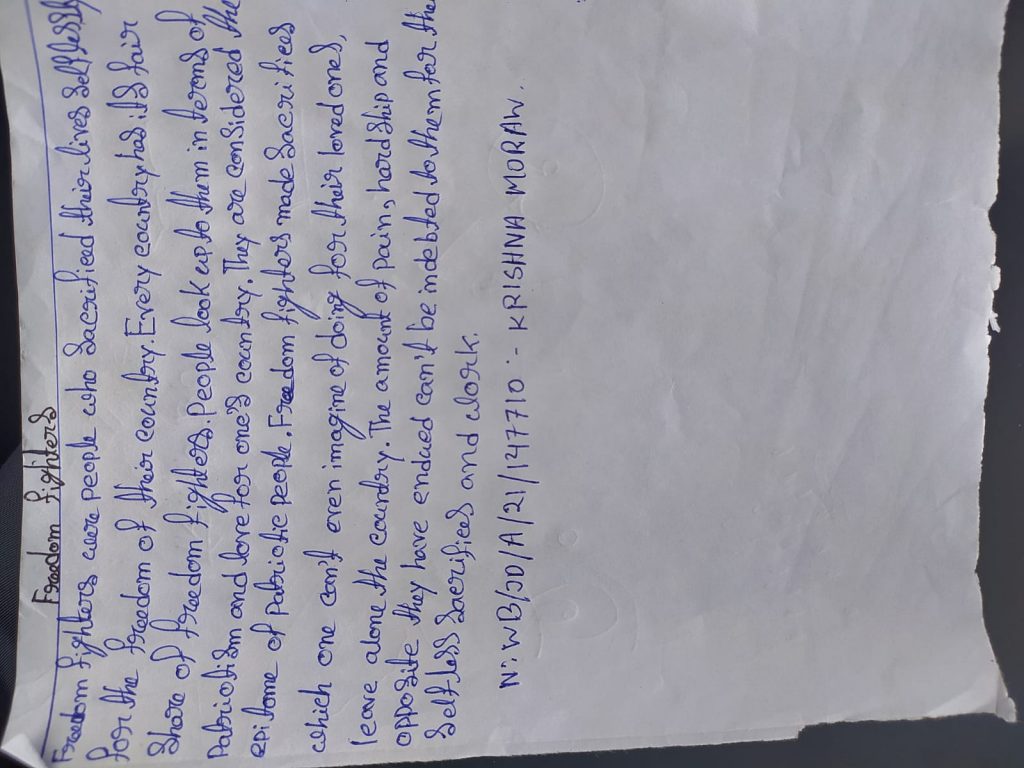 Freedom fighters
Freedom fighters were people who Sacrificed their lives Selflessly
for the freedom of their country. Every country has it's fair
Share of freedom fighters. People look up to them in terms of
Patriotism and love for one's country. They are considered the
epitome of Patriotic people. Freedom fighters made Sacrifices
which one can't even imagine of doing for their loved ones,
leave alone the country. The amount of pain, hardship and
opposite they have endued can't be indebted to them for the
Selfless Sacrifices and work.
No:WB/JD/A/21/147710 :- KRISHNA MORAW.